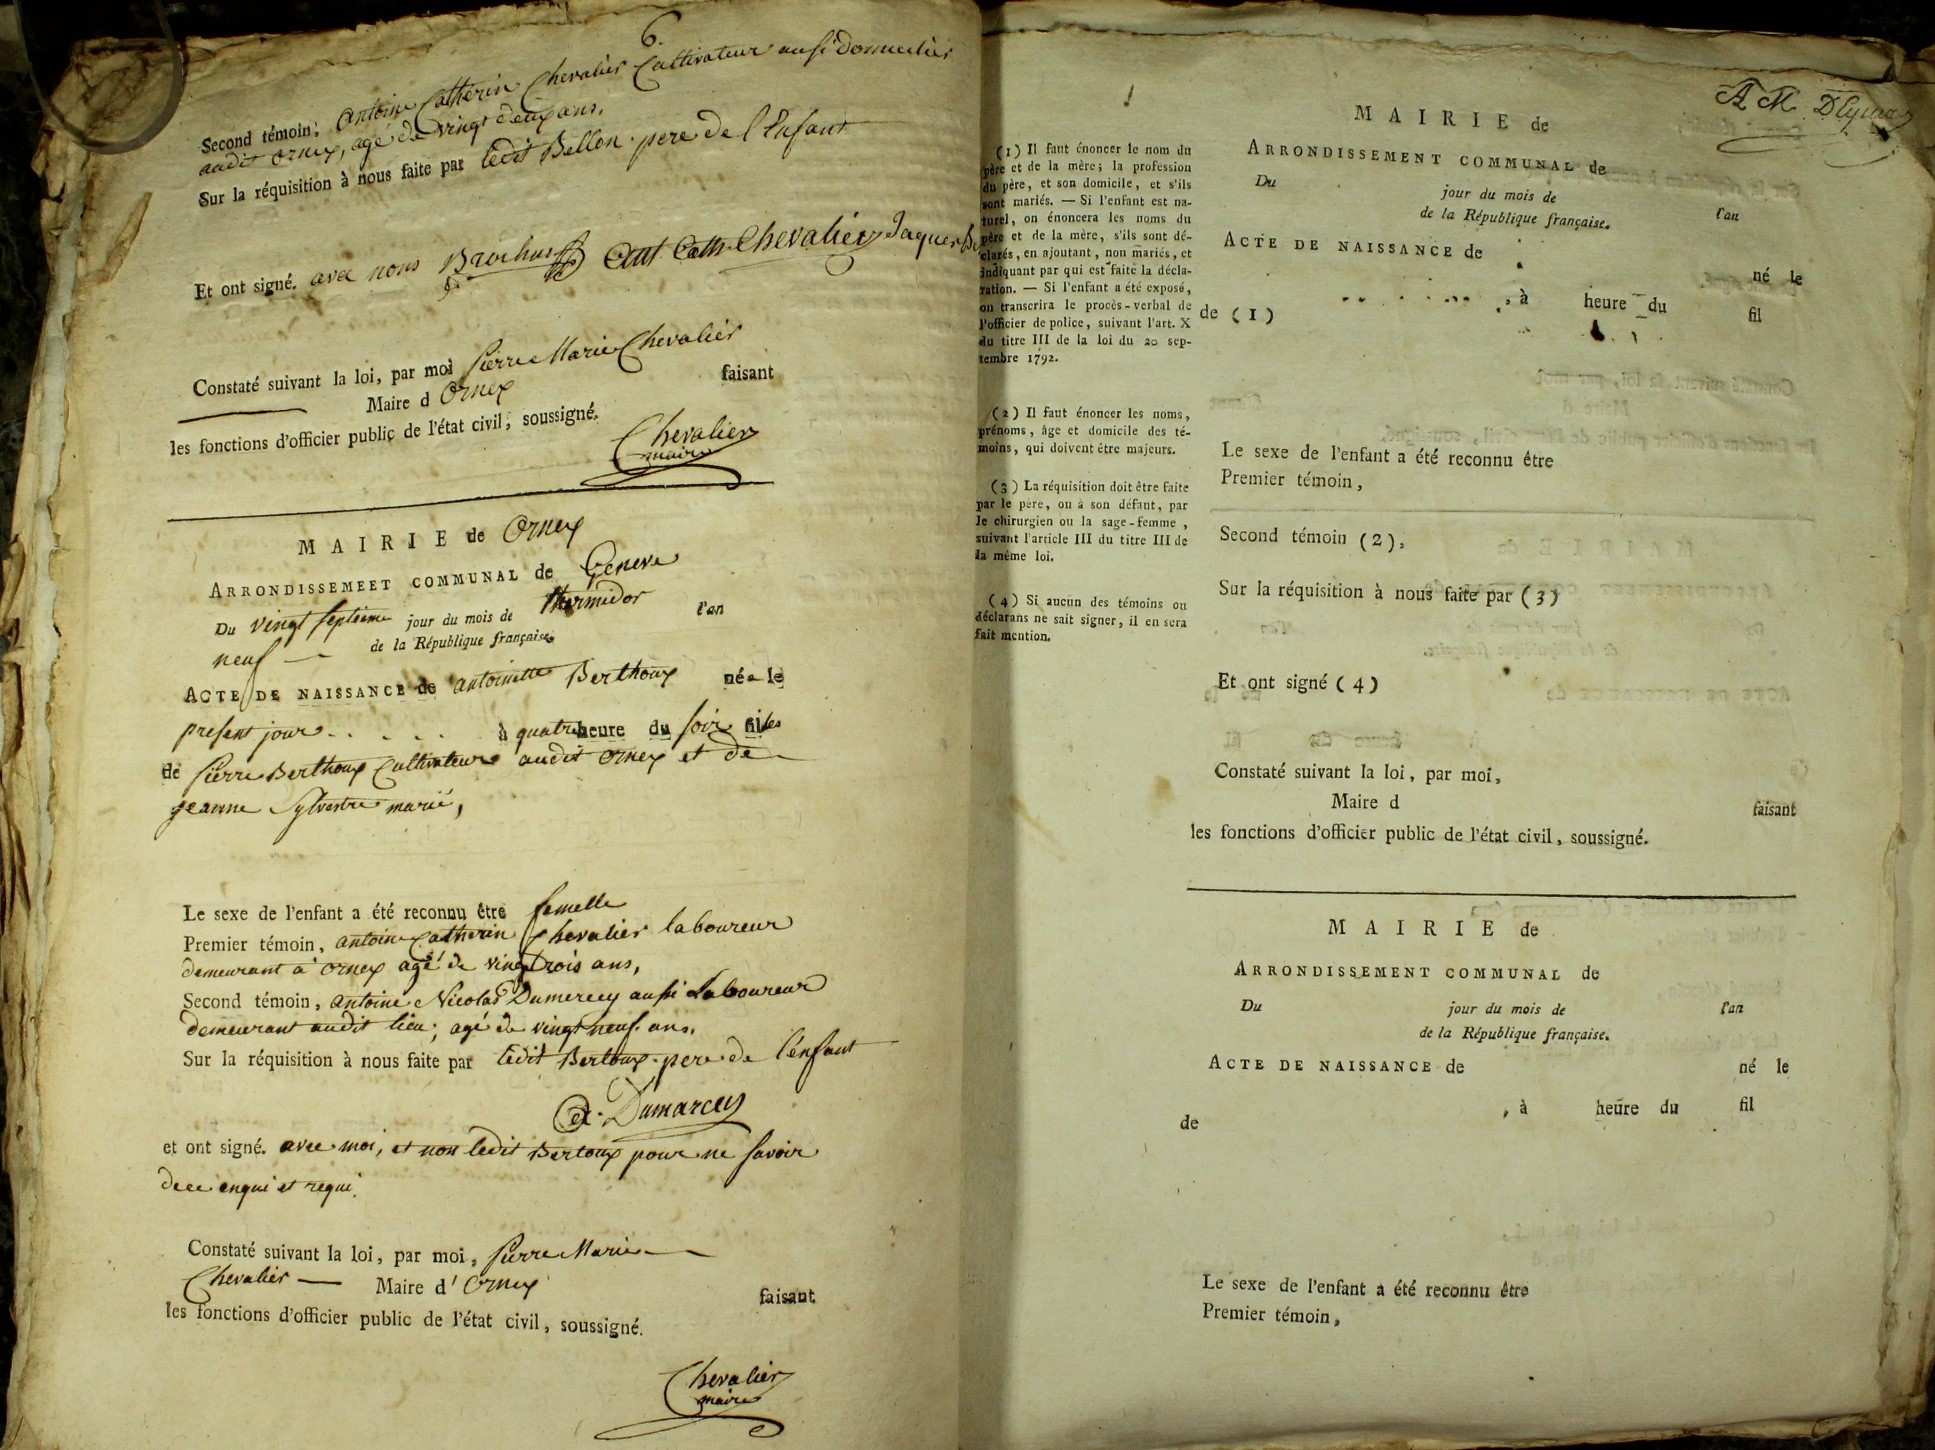 6.
Second témoin; Antoine Catherin Chevalier Cultivateur aussi Domicilié
audit ornex, agé de vingt deux ans.
Sur la réquisition à nous faite par ledit Bellon pere de l'Enfant
Et ont signé. avec nous Brochus Ant Cath Chevalier Jaques Be
Constaté suivant la loi, par moi Pierre Marie Chevalier
Maire d Ornex faisant
les fonctions d'officier public de l'état civil, soussigné.
Chevalier
maire
MAIRIE de Ornex
ARRONDISSEMEET COMMUNAL de Geneve
Du vingt septieme jour du mois de thermidor l'an
neuf de la République française.
ACTE DE NAISSANCE de antoinette Berthoux née le
present jour à quatre heure du soir fille
de Pierre Berthoux Cultivateur audit ornex et de
jeanne Sylvestre marié,
Le sexe de l'enfant a été reconnu être femelle
Premier témoin, antoine Catherin Chevalier laboureur
demeurant à ornex agé de vingt trois ans,
Second témoin, antoine Nicolas Dumerecy aussi Laboureur
demeurant audit lieu, agé de vingt neuf ans.
Sur la réquisition à nous faite par ledit Bertoux pere de l'enfant
Dumarcey
et ont signé. avec moi, et non ledit Bertoux pour ne savoir
dece enqui et requi.
Constaté suivant la loi, par moi, Pierre Marie
Chevalier Maire d' Ornex faisant
les fonctions d'officier public de l'état civil, soussigné.
Chevalier
maire
(1) Il faut énoncer le nom du
père et de la mère; la profession
du père, et son domicile, et s'ils
sont mariés. — Si l'enfant est na-
turel, on énoncera les noms du
père et de la mère, s'ils sont dé-
clarés, en ajoutant, non mariés, et
indiquant par qui est faite la décla-
ration. — Si l'enfant a été exposé,
on transcrira le procès-verbal de
l'officier de police, suivant l'art. X
du titre III de la loi du 20 sep-
tembre 1792.
(2) Il faut énoncer les noms,
prénoms, âge et domicile des té-
moins, qui doivent être majeurs.
(3) La réquisition doit être faite
par le père, ou à son défaut, par
le chirurgien ou la sage-femme,
suivant l'article III du titre III de
la même loi.
(4) Si aucun des témoins ou
déclarans ne sait signer, il en sera
fait mention.
MAIRIE de
ARRONDISSEMENT COMMUNAL de
Du jour du mois de l'an
de la République française.
ACTE DE NAISSANCE de né le
, à heure du fil
de (1)
Le sexe de l'enfant a été reconnu être
Premier témoin,
Second témoin (2),
Sur la réquisition à nous faite par (3)
Et ont signé (4)
Constaté suivant la loi, par moi,
Maire d faisant
les fonctions d'officier public de l'état civil, soussigné.
MAIRIE de
ARRONDISSEMENT COMMUNAL de
Du jour du mois de l'an
de la République française.
ACTE DE NAISSANCE de né le
, à heure du fil
de
Le sexe de l'enfant a été reconnu être
Premier témoin,